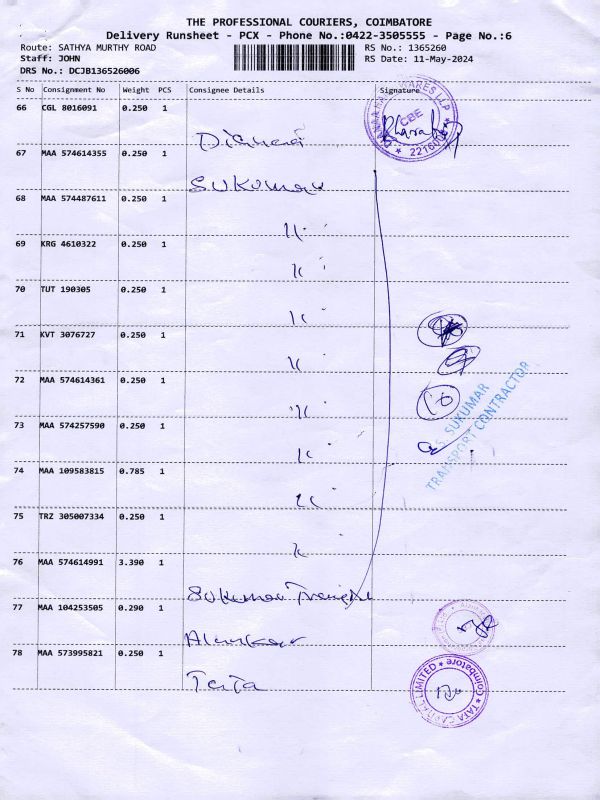 THE PROFESSIONAL COURIERS, COIMBATORE
Delivery Runsheet - PCX - Phone No.:0422-3505555 - Page No.:6
Route: SATHYA MURTHY ROAD
RS No.: 1365260
Staff: JOHN
RS Date: 11-May-2024
DRS No.: DCJB136526006
S No Consignment No Weight PCS Consignee Details Signature
66 CGL 8016091 0.250 1
CBE
67 MAA 574614355 0.250 1
Sukumar
68 MAA 574487611 0.250 1
69 KRG 4610322 0.250 1
70 TUT 190305 0.250 1
71 KVT 3076727 0.250 1
72 MAA 574614361 0.250 1
10
73 MAA 574257590 0.250 1
S. SUKUMAR
TRANSPORT CONTRACTOR
74 MAA 109583815 0.785 1
75 TRZ 305007334 0.250 1
76 MAA 574614991 3.390 1
Sukumar
77 MAA 104253505 0.290 1
78 MAA 573995821 0.250 1
Tata
TATA CAPITAL LIMITED * Coimbatore *